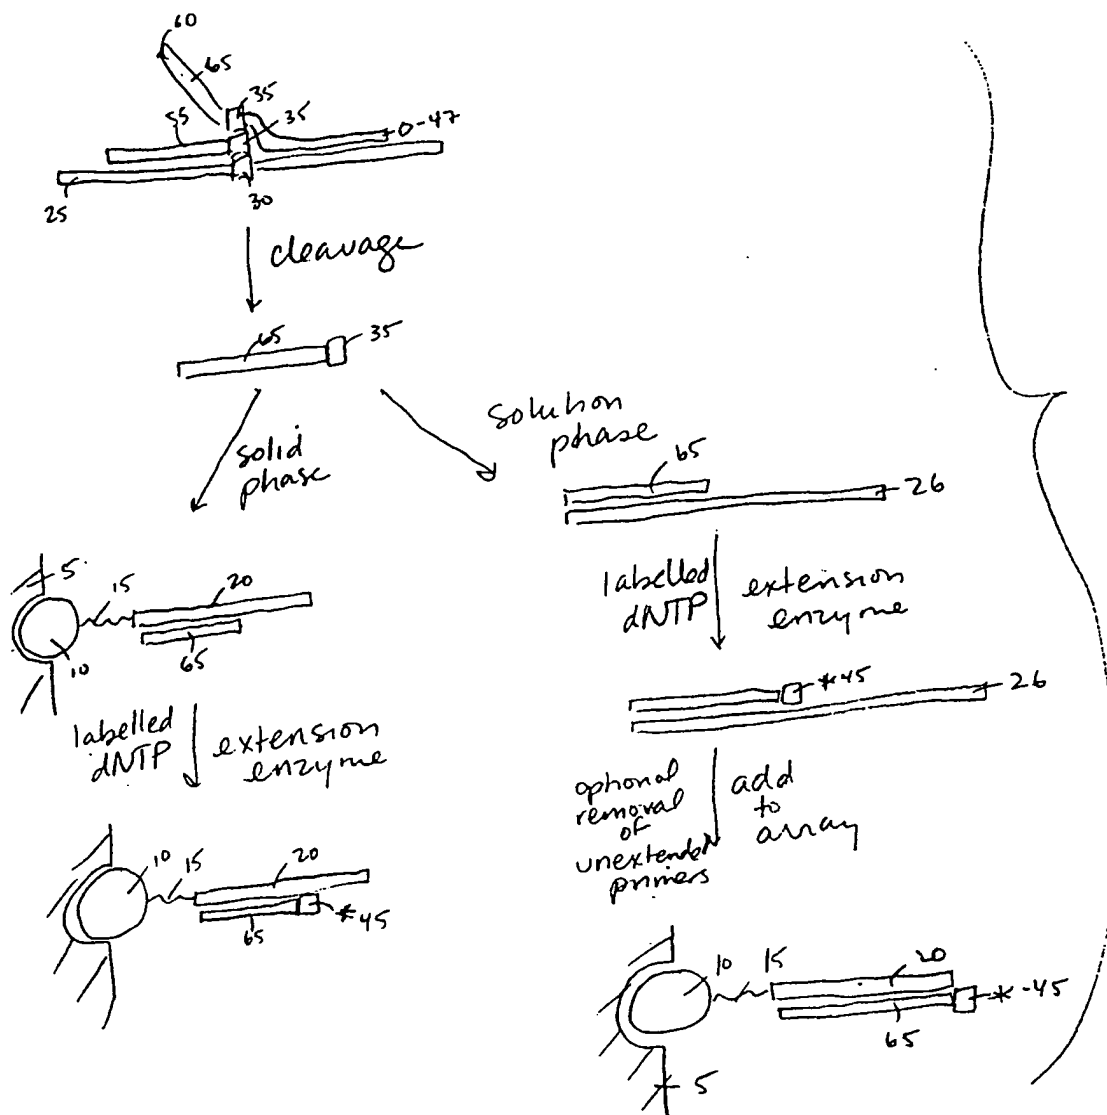 60
65
35
55
35
0-47
25
30
cleavage
65
35
solid
phase
solution
phase
65
26
labelled
dNTP
extension
enzyme
5
15
20
10
65
*45
26
labelled
dNTP
extension
enzyme
optional
removal
of
unextended
primers
add
to
array
10
15
20
65
*45
10
15
20
65
*-45
5